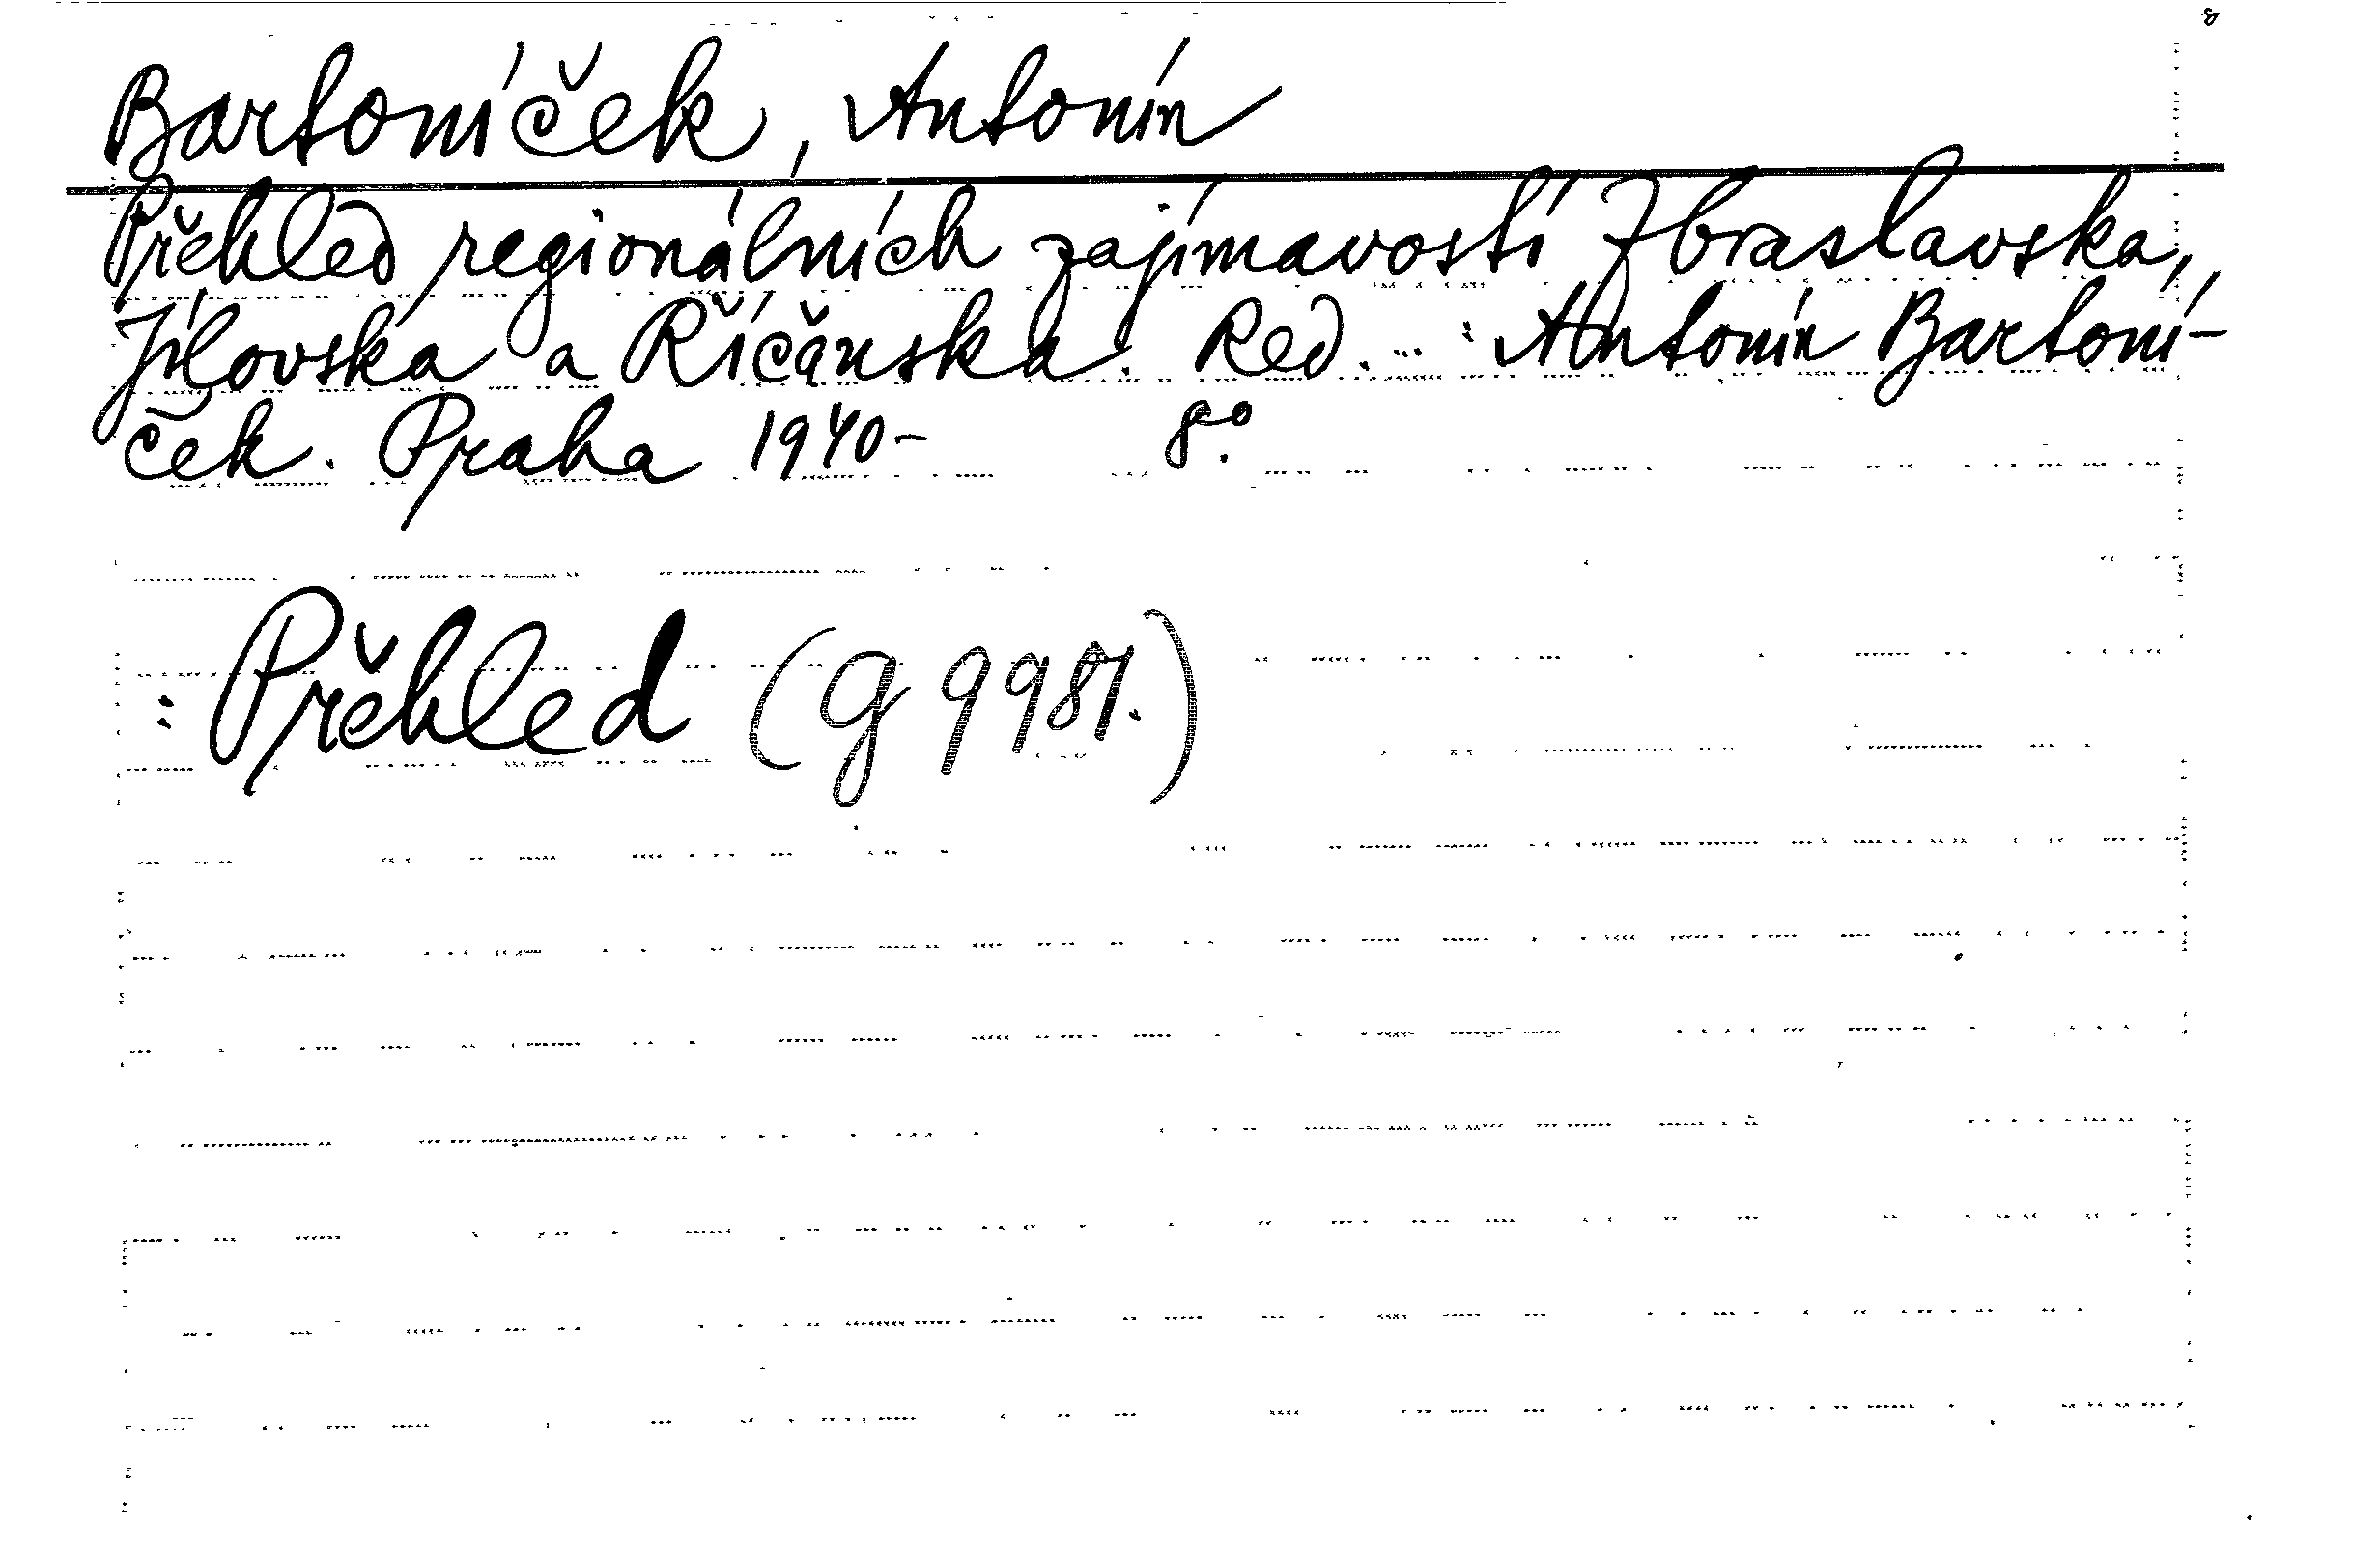 Bartoníček, Antonín
Přehled regionálních zajímavostí Zbraslavska,
Jílovska a Říčanska. Red. ... : Antonín Bartoní-
ček. Praha 1940- 8°.
: Přehled (G 9981.)